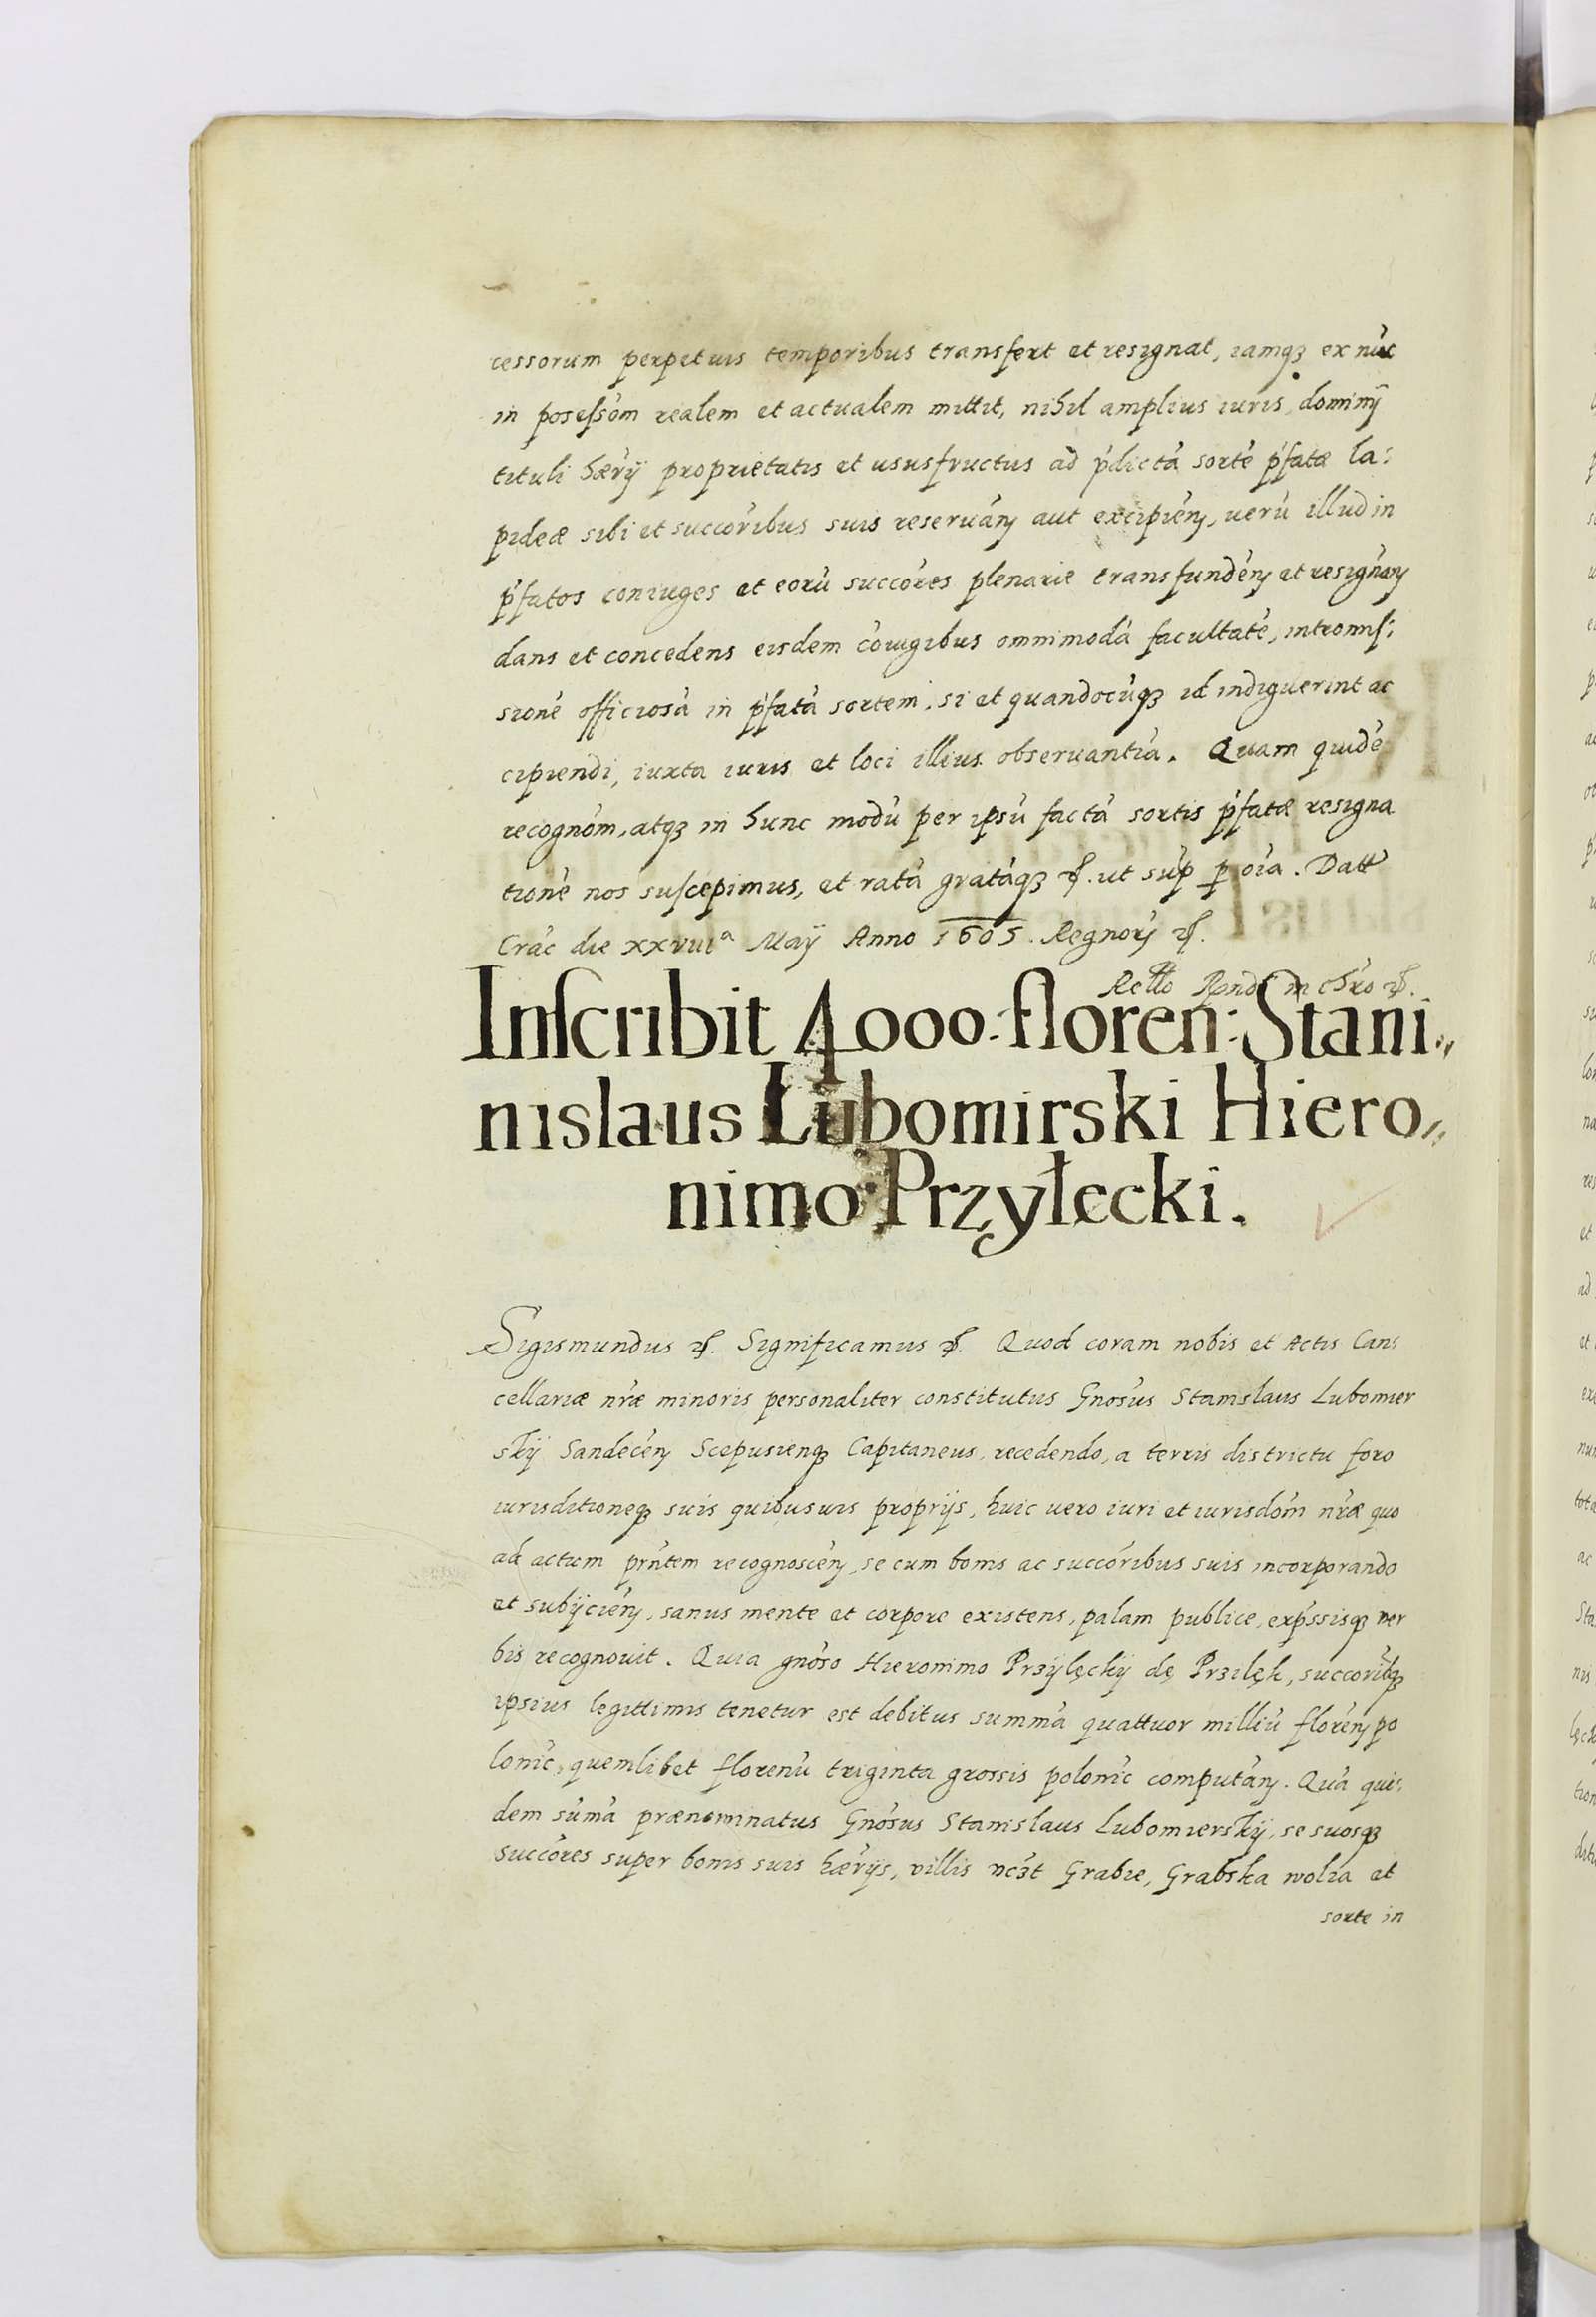 cessorum perpetuis temporibus transfert et resignat, iamqꝫ ex nūc
in posessōm realem et actualem mittit, nihil amplius iuris, dominij
tituli hærij proprietatis et ususfructus ad p̄dictā sortē p̄fatæ La:
pideæ sibi et succōribus suis reservān aut excipiēn, uerū illud in
p̄fatos coniuges et eorū succōres plenarie transfundēn et resignān
dans et concedens eisdem cōiugibus omnimodā facultatē, intromis:
sionē officiosā in p̄fatā sortem, si et quandocūqꝫ id indiguerint ac
cipiendi, iuxta iuris et loci illius observantiā. Quam quidē
recognōm, atqꝫ in hunc modū per ipsū factā sortis p̄fatæ resigna
tionē nos suscepimus, et ratā gratāqꝫ ꝛc. ut sup̄ ꝑ oīa. Datt
Crac̄ die xxviiiᵃ Maij Anno 1605. Regnorꝫ ꝛc.
Retto Rendi in chro ꝛc.
Inscribit 4000. floren: Stani„
nislaus Lubomirski Hiero„
nimo Przyłęcki.
Sigismundus ꝛc. Significamus ꝛc. Quod coram nobis et Actis Can:
cellariæ nr̄æ minoris personaliter constitutus Gnōsus Stanislaus Lubomier
skij Sandecēn Scepusienqꝫ Capitaneus, recedendo, a terris districtu foro
iurisditioneqꝫ suis quibusuis proprijs, huic uero iuri et iurisdōm nr̄æ quo
ad actum prn̄tem recognoscēn, se cum bonis ac succōribus suis incorporando
et subijciēn, sanus mente et corpore existens, palam publice, exp̄ssisqꝫ ver
bis recognouit. Quia gnōso Hieronimo Przijlęckij dę Przilęk, succorib̄qꝫ
ipsius legittimis tenetur est debitus summā quattuor milliū florēn po
lonic̄, quemlibet florenū triginta grossis polonic̄ computān. Quā qui:
dem sūmā prænominatus Gnōsus Stanislaus Lubomierskij, se suosqꝫ
succōres super bonis suis hærijs, villis vcꝫt Grabie, Grabska wolia et
sorte in